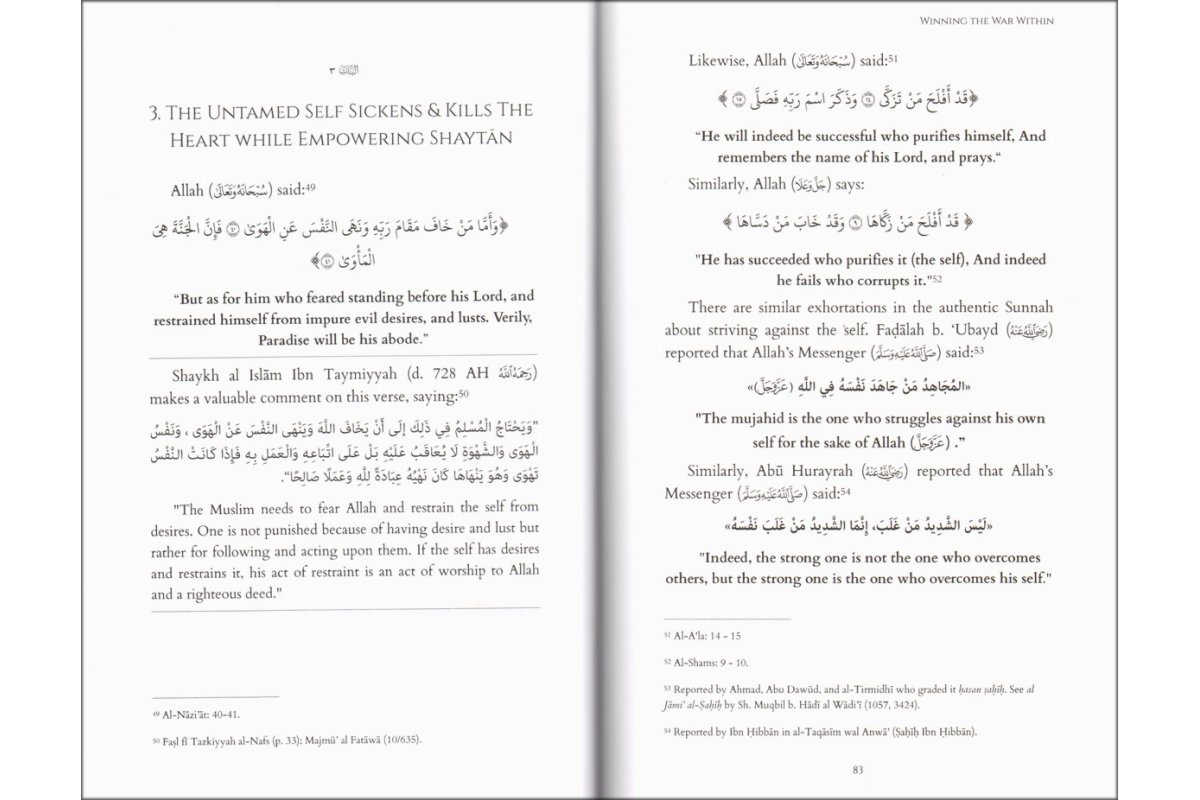 الباب ٣
3. The Untamed Self Sickens & Kills The
Heart while Empowering Shaytān
Allah (سُبْحَانَهُ وَتَعَالَىٰ) said:⁴⁹
﴿وَأَمَّا مَنْ خَافَ مَقَامَ رَبِّهِ وَنَهَى النَّفْسَ عَنِ الْهَوَىٰ ۝٤٠ فَإِنَّ الْجَنَّةَ هِيَ
الْمَأْوَىٰ ۝٤١﴾
“But as for him who feared standing before his Lord, and
restrained himself from impure evil desires, and lusts. Verily,
Paradise will be his abode.”
Shaykh al Islām Ibn Taymiyyah (d. 728 AH رَحِمَهُ ٱللَّهُ)
makes a valuable comment on this verse, saying:⁵⁰
”وَيَحْتَاجُ الْمُسْلِمُ فِي ذَلِكَ إِلَى أَنْ يَخَافَ اللَّهَ وَيَنْهَى النَّفْسَ عَنْ الْهَوَى ، وَنَفْسُ
الْهَوَى وَالشَّهْوَةِ لَا يُعَاقَبُ عَلَيْهِ بَلْ عَلَى اتِّبَاعِهِ وَالْعَمَلِ بِهِ فَإِذَا كَانَتْ النَّفْسُ
تَهْوَى وَهُوَ يَنْهَاهَا كَانَ نَهْيُهُ عِبَادَةً لِلَّهِ وَعَمَلًا صَالِحًا“.
"The Muslim needs to fear Allah and restrain the self from
desires. One is not punished because of having desire and lust but
rather for following and acting upon them. If the self has desires
and restrains it, his act of restraint is an act of worship to Allah
and a righteous deed."
⁴⁹ Al-Nāzi’āt: 40-41.
⁵⁰ Faṣl fī Tazkiyyah al-Nafs (p. 33); Majmū’ al Fatāwā (10/635).
Winning the War Within
Likewise, Allah (سُبْحَانَهُ وَتَعَالَىٰ) said:⁵¹
﴿قَدْ أَفْلَحَ مَنْ تَزَكَّى ۝١٤ وَذَكَرَ اسْمَ رَبِّهِ فَصَلَّى ۝١٥ ﴾
“He will indeed be successful who purifies himself, And
remembers the name of his Lord, and prays.“
Similarly, Allah (جَلَّ وَعَلَا) says:
﴿ قَدْ أَفْلَحَ مَنْ زَكَّاهَا ۝٩ وَقَدْ خَابَ مَنْ دَسَّاهَا ﴾
"He has succeeded who purifies it (the self), And indeed
he fails who corrupts it."⁵²
There are similar exhortations in the authentic Sunnah
about striving against the self. Faḍālah b. ‘Ubayd (رَضِيَ اللَّهُ عَنْهُ)
reported that Allah’s Messenger (صَلَّى اللَّهُ عَلَيْهِ وَسَلَّمَ) said:⁵³
«المُجَاهِدُ مَنْ جَاهَدَ نَفْسَهُ فِي اللَّهِ (عَزَّ وَجَلَّ)»
"The mujahid is the one who struggles against his own
self for the sake of Allah (عَزَّ وَجَلَّ) .”
Similarly, Abū Hurayrah (رَضِيَ اللَّهُ عَنْهُ) reported that Allah’s
Messenger (صَلَّى اللَّهُ عَلَيْهِ وَسَلَّمَ) said:⁵⁴
«لَيْسَ الشَّدِيدُ مَنْ غَلَبَ، إِنَّمَا الشَّدِيدُ مَنْ غَلَبَ نَفْسَهُ»
"Indeed, the strong one is not the one who overcomes
others, but the strong one is the one who overcomes his self."
⁵¹ Al-A’la: 14 - 15
⁵² Al-Shams: 9 - 10.
⁵³ Reported by Ahmad, Abu Dawūd, and al-Tirmidhī who graded it ḥasan ṣaḥīḥ. See al
Jāmi’ al-Ṣaḥīḥ by Sh. Muqbil b. Hādī al Wādi’ī (1057, 3424).
⁵⁴ Reported by Ibn Ḥibbān in al-Taqāsīm wal Anwā’ (Ṣaḥīḥ Ibn Ḥibbān).
83